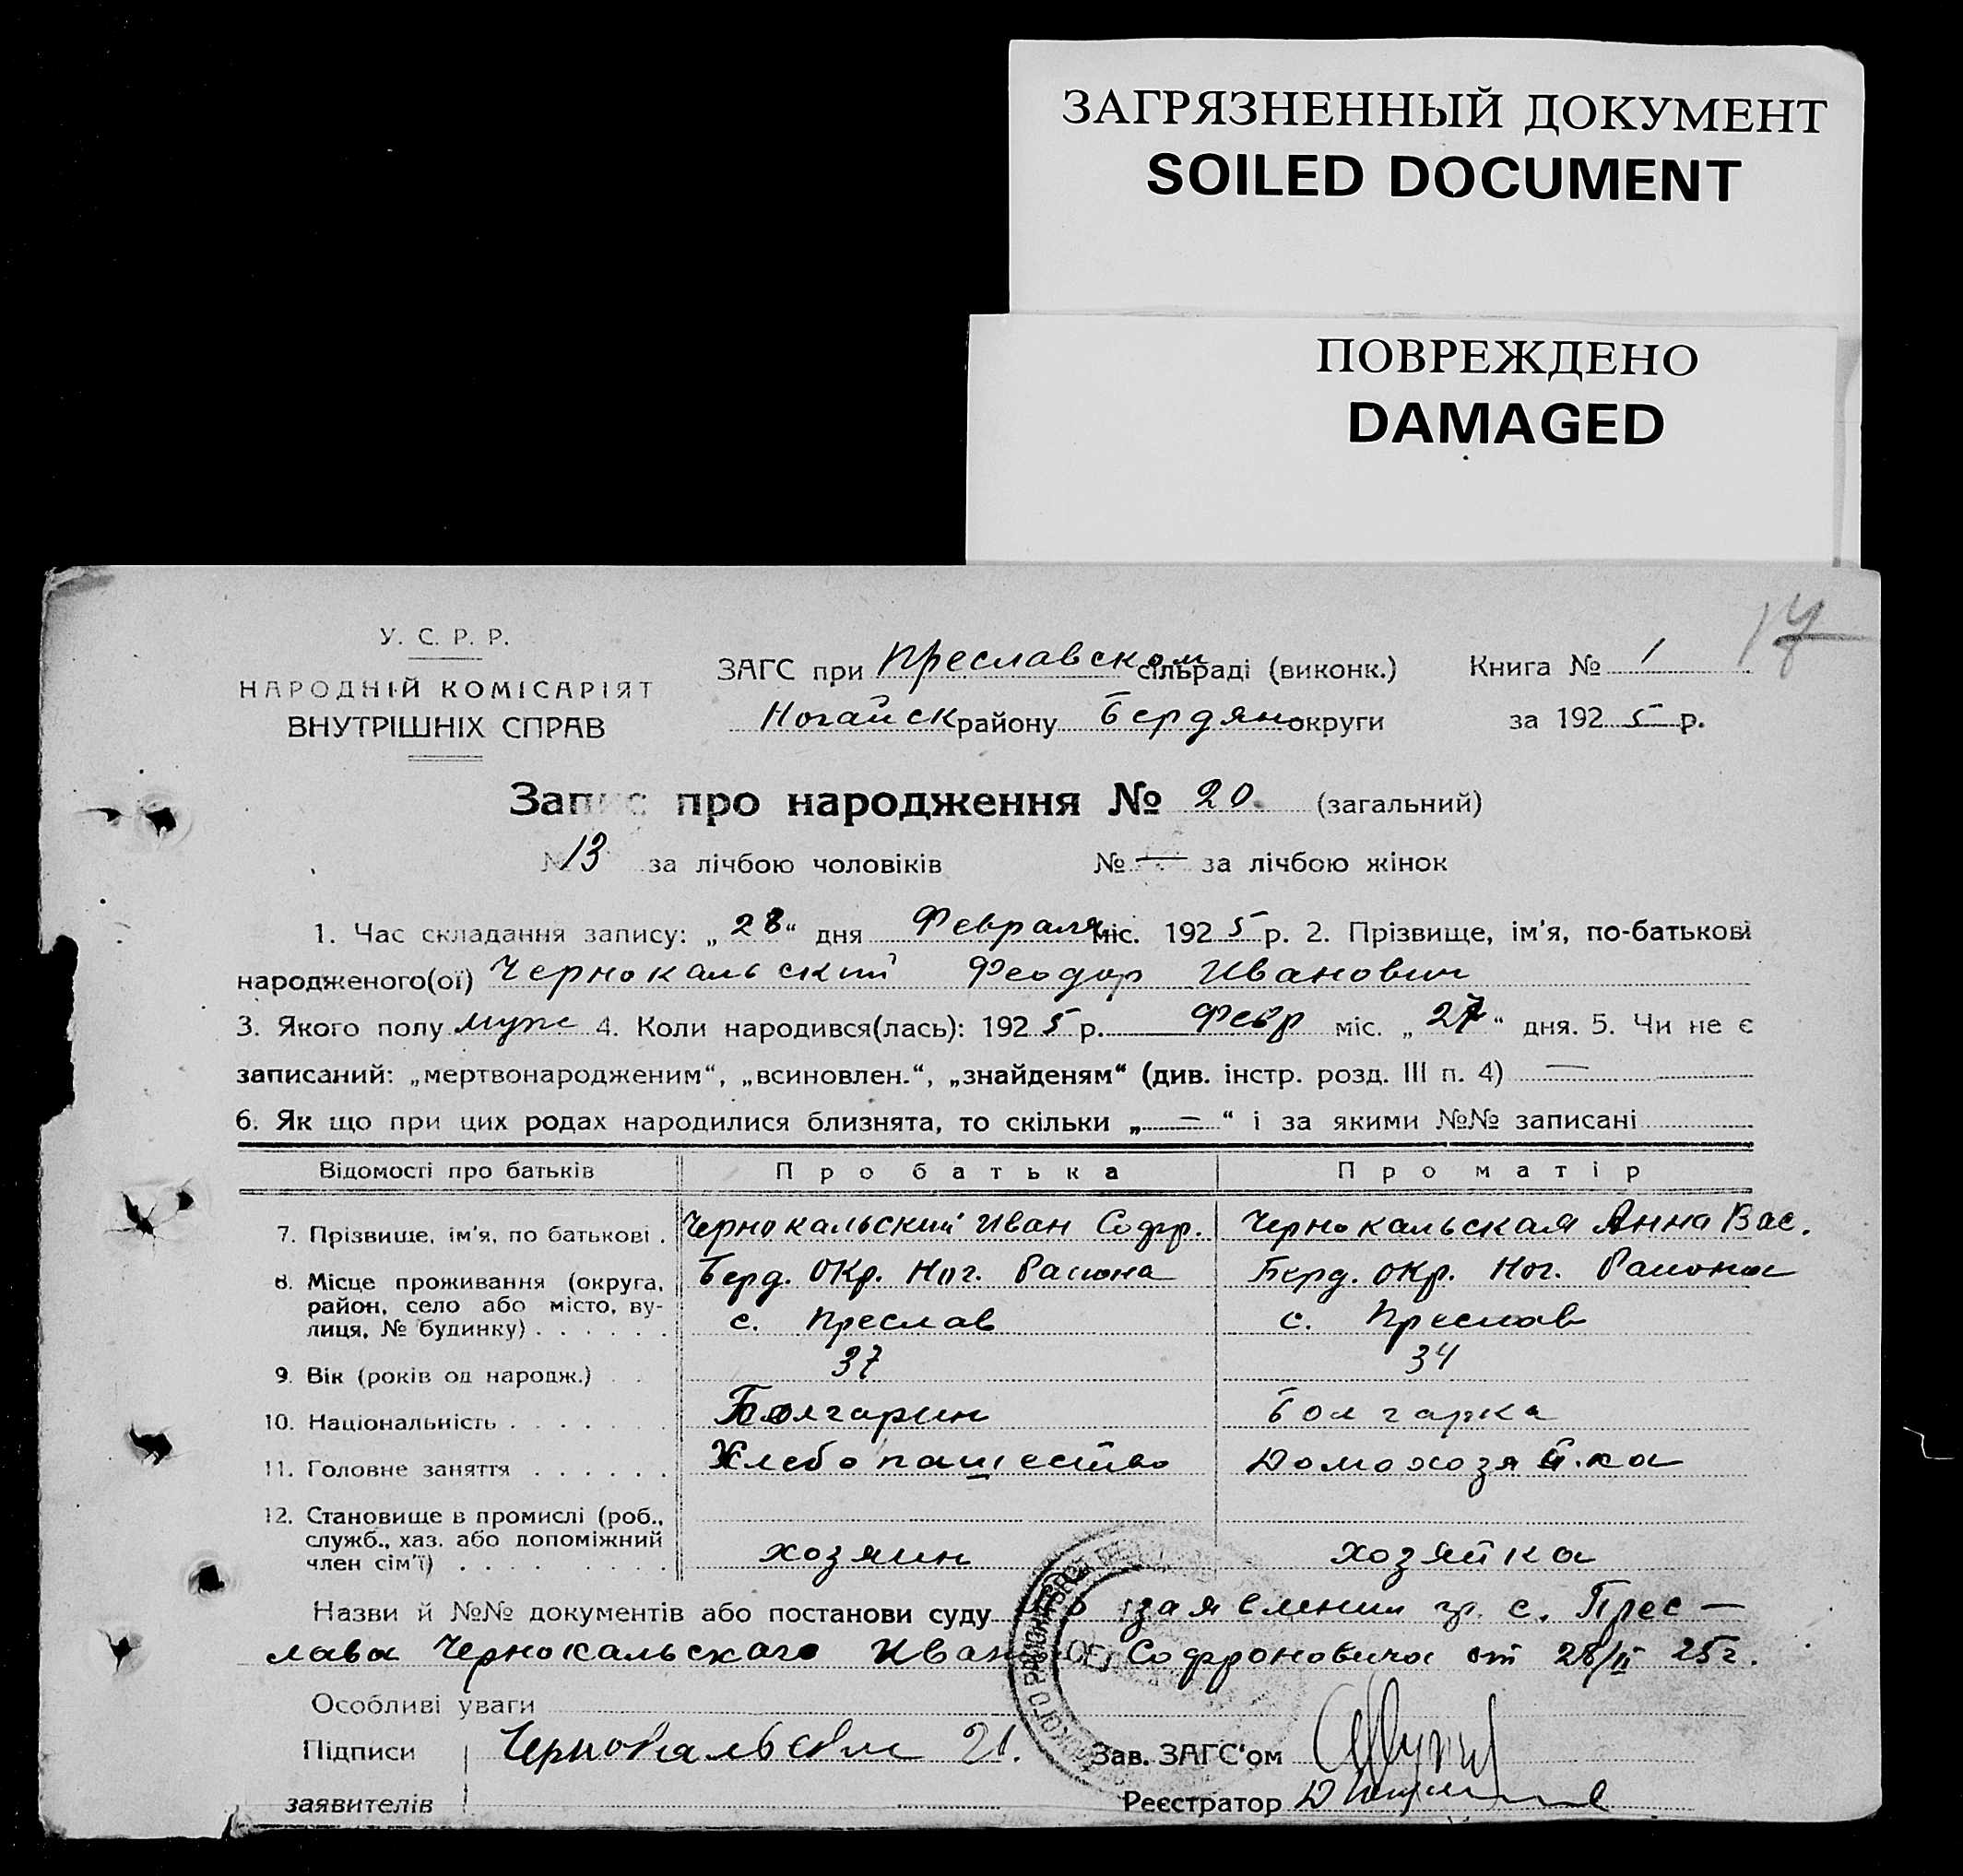 ЗАГРЯЗНЕННЫЙ ДОКУМЕНТ
SOILED DOCUMENT
ПОВРЕЖДЕНО
DAMAGED
17
У. С. Р. Р.
НАРОДНІЙ КОМІСАРІЯТ
ВНУТРІШНІХ СПРАВ
ЗАГС при Преславском сільраді (виконк.) Книга № 1
Ногайск району Бердян округи за 1925 р.
Запис про народження № 20. (загальний)
№ 13 за лічбою чоловіків № — за лічбою жінок
1. Час складання запису: „28“ дня Февраля міс. 1925 р. 2. Прізвище, ім'я, по-батькові
народженого(ої) Чернокальский Феодор Иванович
3. Якого полу муж 4. Коли народився(лась): 1925 р. Февр міс. „27“ дня. 5. Чи не є
записаний: „мертвонародженим“, „всиновлен.“, „знайденям“ (див. інстр. розд. III п. 4) —
6. Як що при цих родах народилися близнята, то скільки „ — “ і за якими №№ записані
Відомості про батьків Про батька Про матір
7. Прізвище, ім'я, по батькові . Чернокальский Иван Софр. Чернокальская Анна Вас.
8. Місце проживання (округа, Берд. Окр. Ног. Района Берд. окр. Ног. Района
район, село або місто, ву-
лиця, № будинку) . . . . . . с. Преслав с. Преслав
9. Вік (років од народж.) . . 37 34
10. Національність . . . . . . Болгарин болгарка
11. Головне заняття . . . . . . Хлебопашество Домохозяйка
12. Становище в промислі (роб.,
служб., хаз. або допоміжний
член сім'ї) . . . . . . . хозяин хозяйка
Назви й №№ документів або постанови суду По заявлении гр. с. Прес—
лава Чернокальского Ивана Софроновича от 28/II 25г.
Особливі уваги
Підписи Чернокальски И. Зав. ЗАГС'ом
заявителів Реєстратор